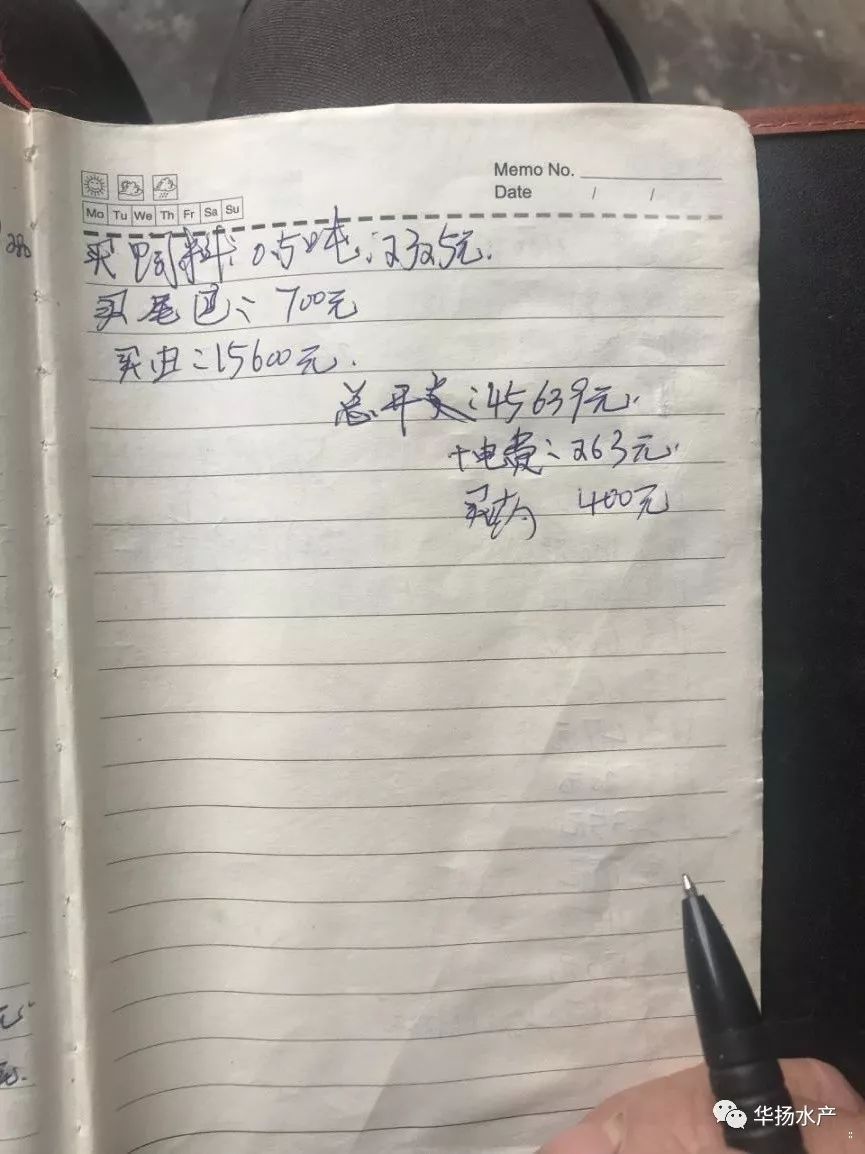 Memo No.
Date / /
Mo Tu We Th Fr Sa Su
买饲料:0.5吨:2325元.
买尾 : 700元
买 :15600元.
总开支:45639元.
+电费:263元.
买 400元
华扬水产